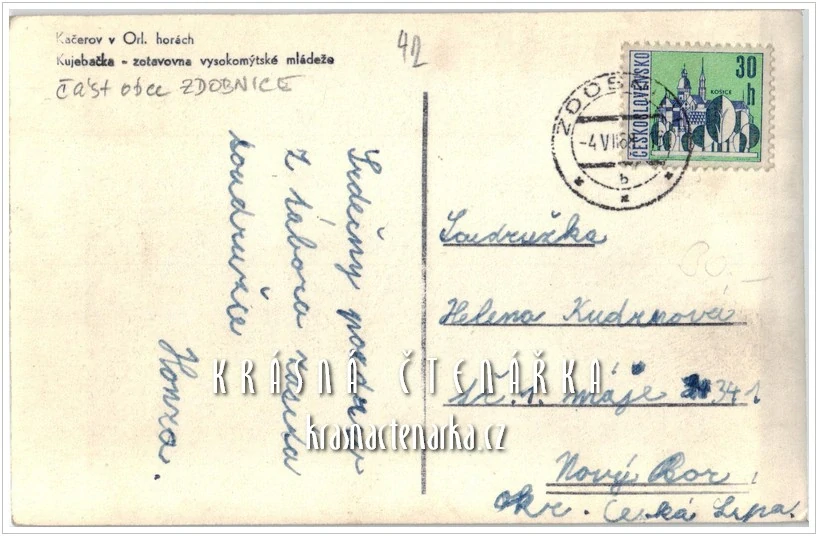 Kačerov v Orl. horách
Kujebačka - zotavovna vysokomýtské mládeže
část obce ZDOBNICE
42
Srdečný pozdrav
z tábora zasílá
soudružce
Honza.
ČESKOSLOVENSKO
30
h
KOŠICE
-4.VII.6
b
Soudružka
Helena Kudrnová
1. máje 341
Nový Bor
okr. Česká Lípa.
KRÁSNÁ ČTENÁŘKA
krasnactenarka.cz